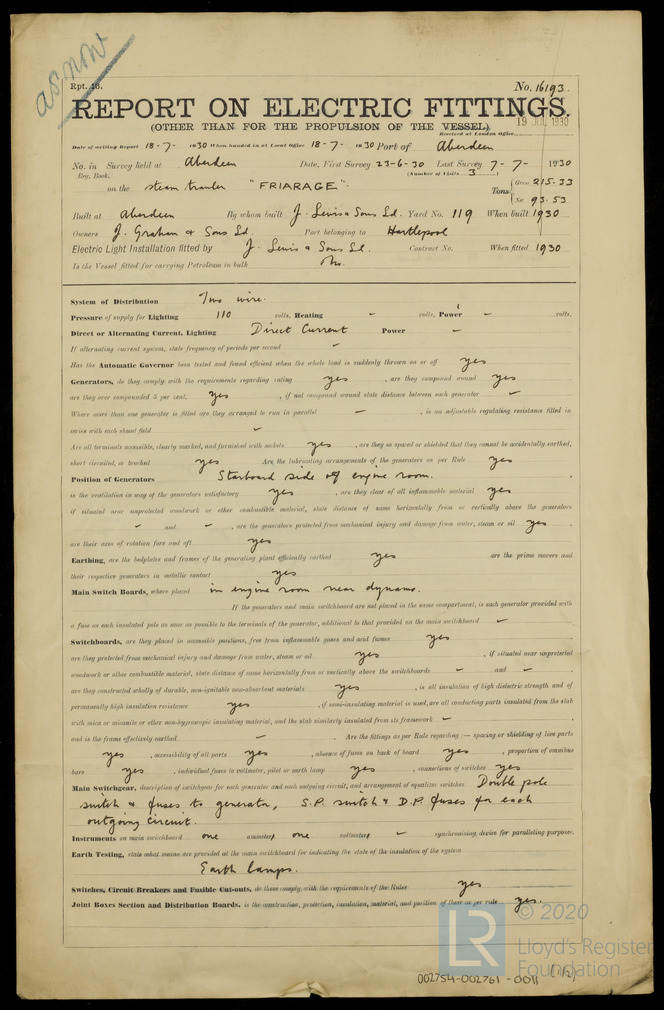 as now
Rpt. 13.
No. 16193.
REPORT ON ELECTRIC FITTINGS.
(OTHER THAN FOR THE PROPULSION OF THE VESSEL).
19 JUL 1930
Received at London Office
Date of writing Report 18-7-1930 When handed in at Local Office 18-7-1930 Port of Aberdeen
No. in Survey held at Aberdeen Date, First Survey 23-6-30 Last Survey 7-7-1930
Reg. Book. (Number of Visits 3)
on the steam trawler "FRIARAGE" Tons Gross 215.33
Net 93.53
Built at Aberdeen By whom built J. Lewis & Sons Ld. Yard No. 119 When built 1930
Owners J. Graham & Sons Ld. Port belonging to Hartlepool
Electric Light Installation fitted by J. Lewis & Sons Ld. Contract No. When fitted 1930
Is the Vessel fitted for carrying Petroleum in bulk No.
System of Distribution Two wire.
Pressure of supply for Lighting 110 volts, Heating - volts, Power - volts.
Direct or Alternating Current, Lighting Direct Current Power -
If alternating current system, state frequency of periods per second -
Has the Automatic Governor been tested and found efficient when the whole load is suddenly thrown on or off yes
Generators, do they comply with the requirements regarding rating yes, are they compound wound yes
are they over compounded 5 per cent. yes, if not compound wound state distance between each generator -
Where more than one generator is fitted are they arranged to run in parallel -, is an adjustable regulating resistance fitted in
series with each shunt field -
Are all terminals accessible, clearly marked, and furnished with sockets yes, are they so spaced or shielded that they cannot be accidentally earthed,
short circuited, or touched yes Are the lubricating arrangements of the generators as per Rule yes
Position of Generators Starboard side of engine room.
is the ventilation in way of the generators satisfactory yes, are they clear of all inflammable material yes
if situated near unprotected woodwork or other combustible material, state distance of same horizontally from or vertically above the generators
- and -, are the generators protected from mechanical injury and damage from water, steam or oil yes
are their axes of rotation fore and aft yes
Earthing, are the bedplates and frames of the generating plant efficiently earthed yes are the prime movers and
their respective generators in metallic contact yes
Main Switch Boards, where placed in engine room near dynamo.
If the generators and main switchboard are not placed in the same compartment, is each generator provided with
a fuse on each insulated pole as near as possible to the terminals of the generator, additional to that provided on the main switchboard -
Switchboards, are they placed in accessible positions, free from inflammable gases and acid fumes yes
are they protected from mechanical injury and damage from water, steam or oil yes, if situated near unprotected
woodwork or other combustible material, state distance of same horizontally from or vertically above the switchboards - and -
are they constructed wholly of durable, non-ignitable non-absorbent materials yes, is all insulation of high dielectric strength and of
permanently high insulation resistance yes, if semi-insulating material is used, are all conducting parts insulated from the slab
with mica or micanite or other non-hygroscopic insulating material, and the slab similarly insulated from its framework -
and is the frame effectively earthed - Are the fittings as per Rule regarding :- spacing or shielding of live parts
yes, accessibility of all parts yes, absence of fuses on back of board yes, proportion of omnibus
bars yes, individual fuses to voltmeter, pilot or earth lamp yes, connections of switches yes
Main Switchgear, description of switchgear for each generator and each outgoing circuit, and arrangement of equalizer switches Double pole
switch & fuses to generator, S.P. switch & D.P. fuses for each
outgoing circuit.
Instruments on main switchboard one ammeter one voltmeter - synchronising device for paralleling purposes.
Earth Testing, state what means are provided at the main switchboard for indicating the state of the insulation of the system
Earth lamps.
Switches, Circuit Breakers and Fusible Cut-outs, do these comply with the requirements of the Rules yes
Joint Boxes Section and Distribution Boards, is the construction, protection, insulation, material, and position of these as per rule yes.
LR
© 2020
Lloyd's Register
Foundation
002754-002761-0011 (1/2)